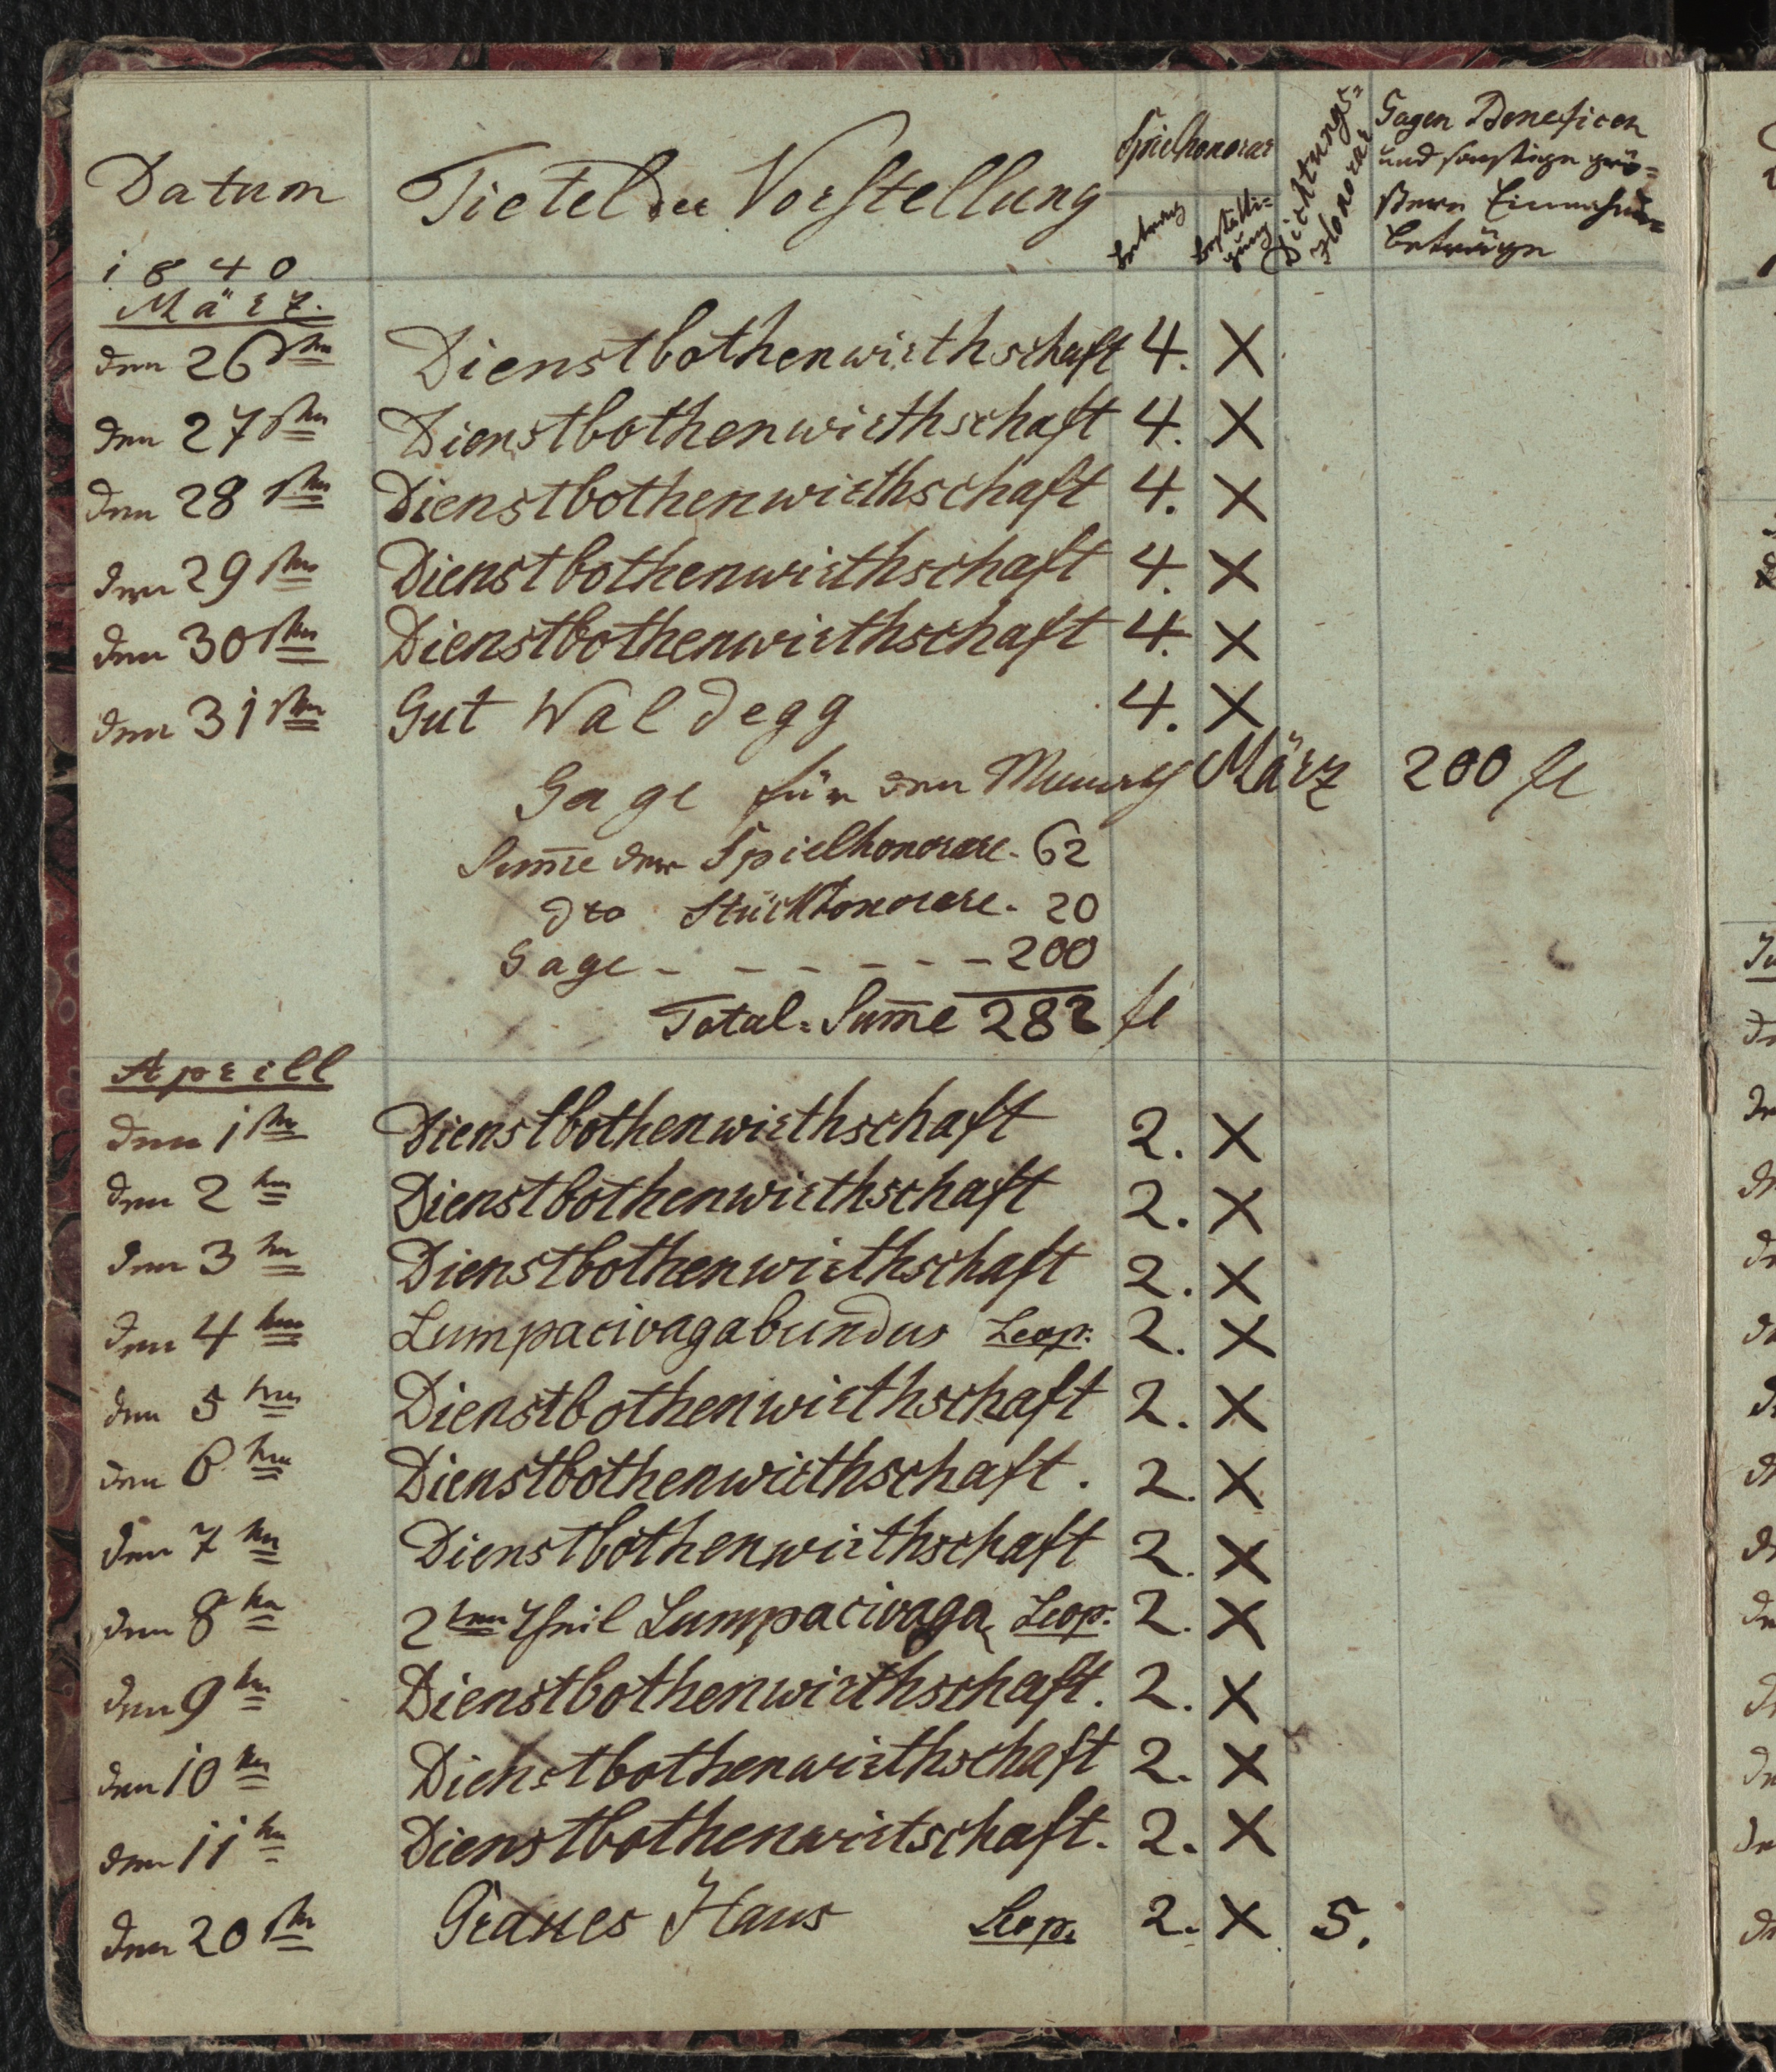 Datum
Tietel der Vorstellung
Spielhonorar
betrag
bestätti=
gung
Dichtungs=
Honorar
Gagen Beneficen
und sonstige grö=
ßere Einnahms=
beträge
1840
März.
den 26sten Dienstbothenwirthschaft 4. X
den 27sten Dienstbothenwirthschaft 4. X
den 28sten Dienstbothenwirthschaft 4. X
den 29sten Dienstbothenwirthschaft 4. X
den 30sten Dienstbothenwirthschaft 4. X
den 31sten Gut Waldegg 4. X
Gage für den Monath März 200 fl
Sum̅e der Spielhonorare. 62
dto Stückhonorare. 20
Gage - - - - - - - 200
Total=Sum̅e 282 fl
Aprill
den 1sten Dienstbothenwirthschaft 2. X
den 2ten Dienstbothenwirthschaft 2. X
den 3ten Dienstbothenwirthschaft 2. X
den 4ten Lumpacivagabundus Leop. 2. X
den 5ten Dienstbothenwirthschaft 2. X
den 6ten Dienstbothenwirthschaft. 2. X
den 7ten Dienstbothenwirthschaft 2. X
den 8ten 2ten Theil Lumpacivaga Leop. 2. X
den 9ten Dienstbothenwirthschaft. 2. X
den 10ten Dienstbothenwirthschaft 2. X
den 11ten Dienstbothenwirtschaft. 2. X
den 20sten Graues Haus Leop. 2. X 5.